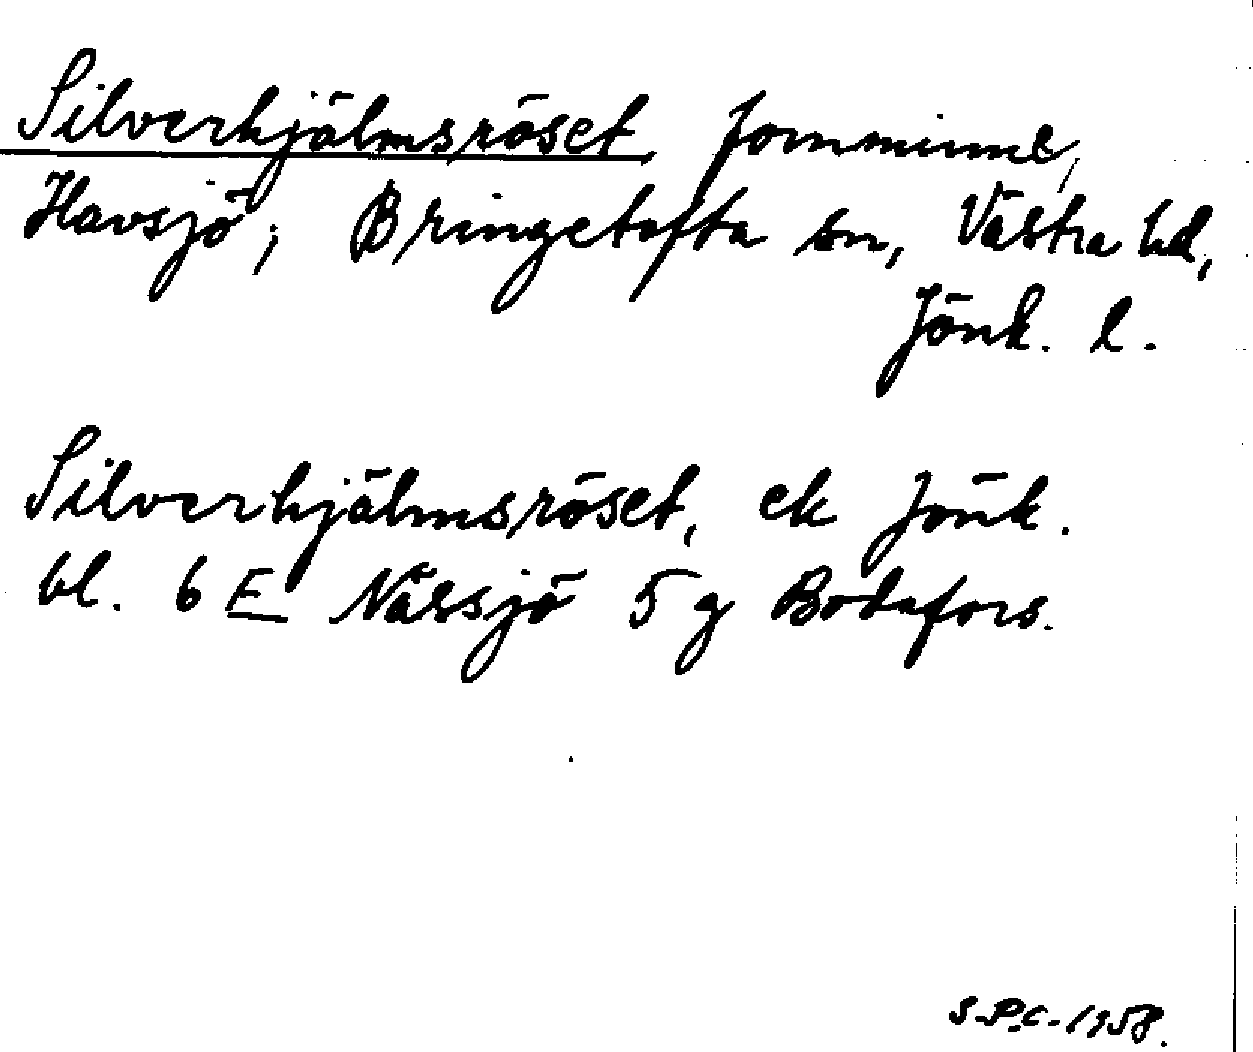 Silverhjälmsröset, fornminne,
Havsjö, Bringetofta sn, Västra hd,
Jönk. l.
Silverhjälmsröset, ek Jönk.
bl. 6 E Nässjö 5 g Bodafors.
S.P.C. 1958.